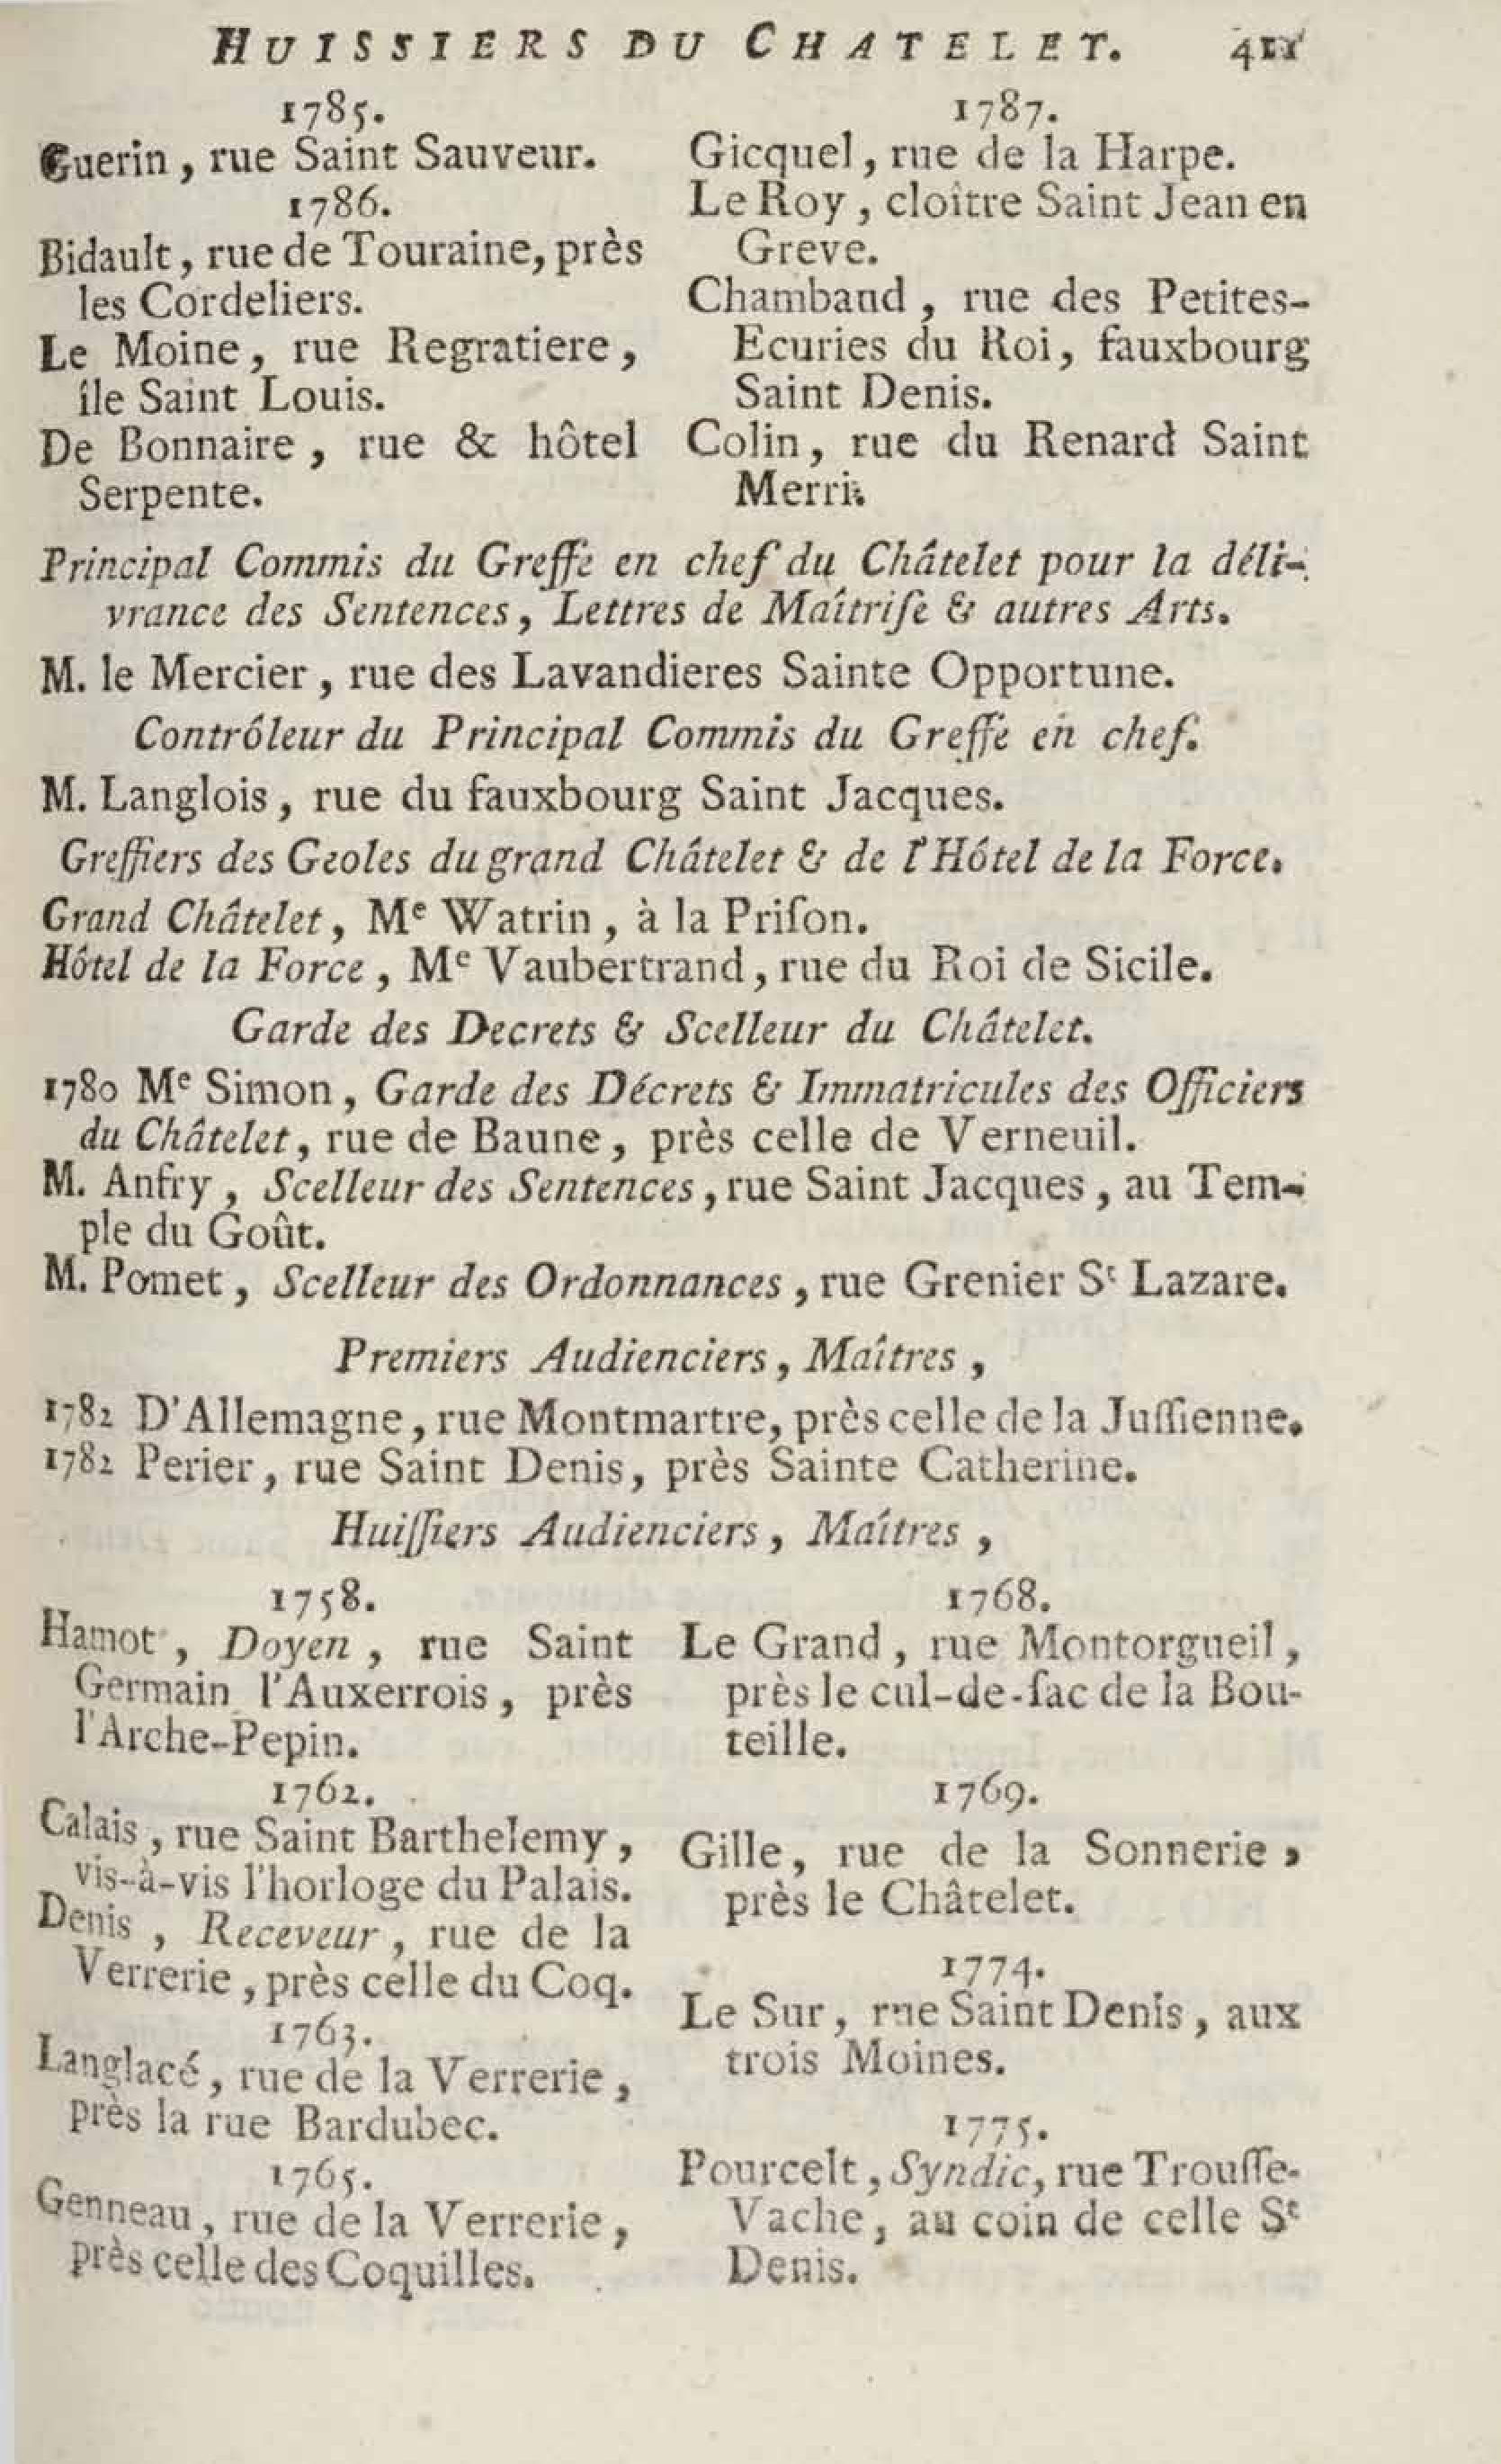 HUISSIERS DU CHATELET. 411
1785.
Guerin, rue Saint Sauveur.
1786.
Bidault, rue de Touraine, près
les Cordeliers.
Le Moine, rue Regratiere,
île Saint Louis.
De Bonnaire, rue & hôtel
Serpente.
1787.
Gicquel, rue de la Harpe.
Le Roy, cloître Saint Jean en
Greve.
Chambaud, rue des Petites-
Ecuries du Roi, fauxbourg
Saint Denis.
Colin, rue du Renard Saint
Merri.
Principal Commis du Greffe en chef du Châtelet pour la déli-
vrance des Sentences, Lettres de Maîtriſe & autres Arts.
M. le Mercier, rue des Lavandieres Sainte Opportune.
Contrôleur du Principal Commis du Greffe en chef.
M. Langlois, rue du fauxbourg Saint Jacques.
Greffiers des Geoles du grand Châtelet & de l'Hôtel de la Force.
Grand Châtelet, Me Watrin, à la Priſon.
Hôtel de la Force, Me Vaubertrand, rue du Roi de Sicile.
Garde des Decrets & Scelleur du Châtelet.
1780 Me Simon, Garde des Décrets & Immatricules des Officiers
du Châtelet, rue de Baune, près celle de Verneuil.
M. Anfry, Scelleur des Sentences, rue Saint Jacques, au Tem-
ple du Goût.
M. Pomet, Scelleur des Ordonnances, rue Grenier St Lazare.
Premiers Audienciers, Maîtres,
1782 D'Allemagne, rue Montmartre, près celle de la Juſſienne.
1782 Perier, rue Saint Denis, près Sainte Catherine.
Huiſſiers Audienciers, Maîtres,
1758.
Hamot, Doyen, rue Saint
Germain l'Auxerrois, près
l'Arche-Pepin.
1762.
Calais, rue Saint Barthelemy,
vis-à-vis l'horloge du Palais.
Denis, Receveur, rue de la
Verrerie, près celle du Coq.
1763.
Langlacé, rue de la Verrerie,
près la rue Bardubec.
1765.
Genneau, rue de la Verrerie,
près celle des Coquilles.
1768.
Le Grand, rue Montorgueil,
près le cul-de-ſac de la Bou-
teille.
1769.
Gille, rue de la Sonnerie,
près le Châtelet.
1774.
Le Sur, rue Saint Denis, aux
trois Moines.
1775.
Pourcelt, Syndic, rue Trouſſe-
Vache, au coin de celle St
Denis.